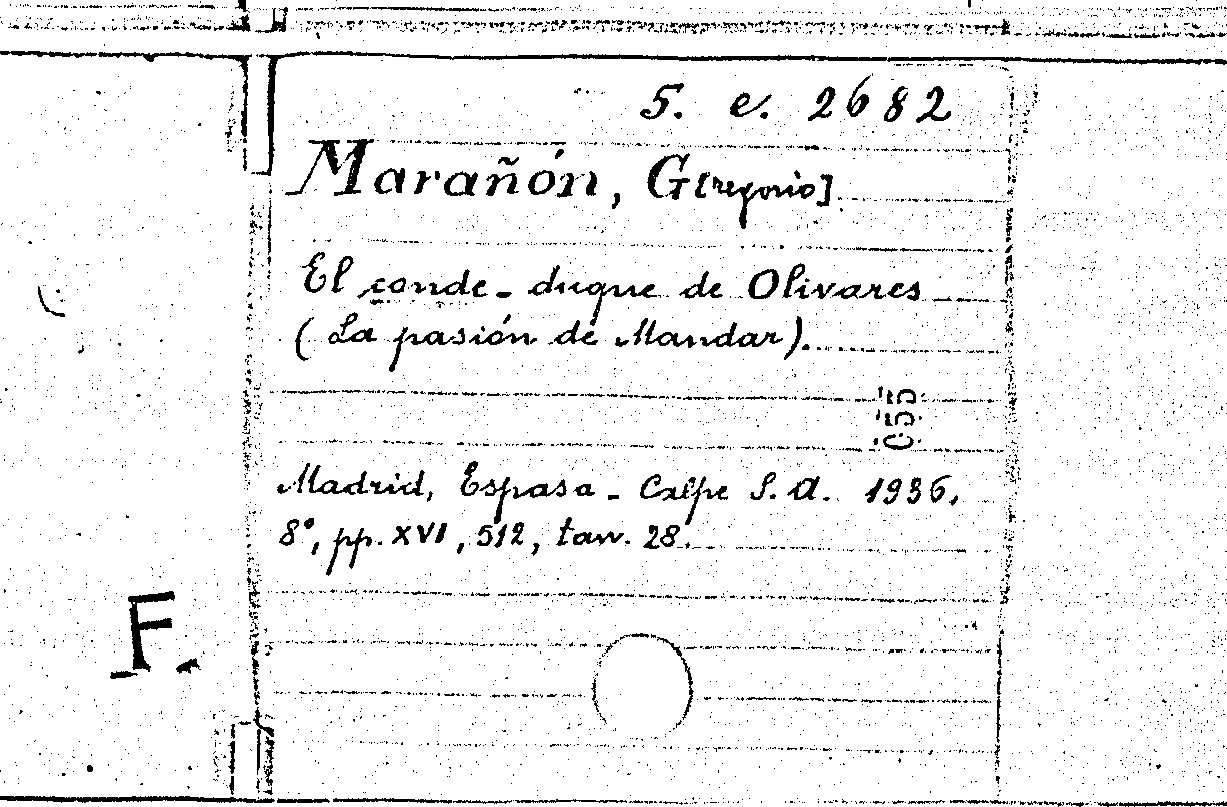 5. e. 2682
Marañón, G[regorio].
El conde-duque de Olivares
(La pasión de Mandar).
Madrid, Espasa-Calpe S.A. 1936.
8°, pp. XVI, 512, tav. 28.
F.